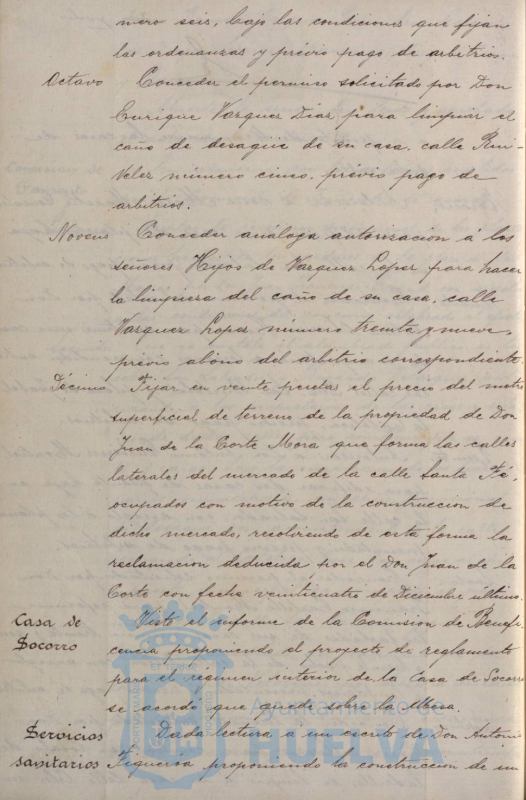 mero seis, bajo las condiciones que fijan
las ordenanzas y prévio pago de arbitrios.
Octavo Conceder el permiso solicitado por Don
Enrique Vazquez Diaz para limpiar el
caño de desagüe de su casa, calle Rui-
Velez número cinco, prévio pago de
arbitrios.
Noveno Conceder análoga autorizacion á los
señores Hijos de Vazquez Lopez para hacer
la limpieza del caño de su casa, calle
Vazquez Lopez número treinta y nueve,
prévio abono del arbitrio correspondiente.
Décimo Fijar en veinte pesetas el precio del metro
superficial de terreno de la propiedad de Don
Juan de la Corte Mora que forma las calles
laterales del mercado de la calle Santa Fé,
ocupados con motivo de la construccion de
dicho mercado, resolviendo de esta forma la
reclamacion deducida por el Don Juan de la
Corte con fecha veinticuatro de Diciembre último.
Casa de Socorro
Visto el informe de la Comision de Benefi-
cencia proponiendo el proyecto de reglamento
para el régimen interior de la Casa de Socorro
se acordó que quede sobre la Mesa.
Servicios sanitarios
Dada lectura a un escrito de Don Antonio
Figueroa proponiendo la construccion de un
Ayuntamiento de
HUELVA